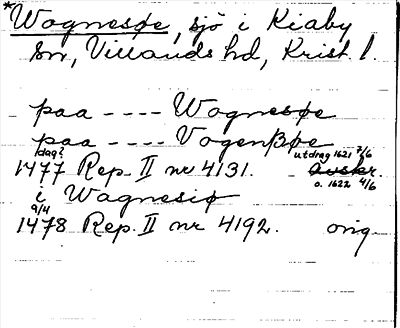 *Wognesøe, sjö i Kiaby
sn, Villands hd, Krist. l.
paa ---- Wognesøe
paa ---- Vogenßøe
dag? utdrag 1621 7/6
1477 Rep. II nr 4131. Avskr.
o. 1622 4/6
i Wagnesiø
9/4
1478 Rep. II nr 4192. orig.